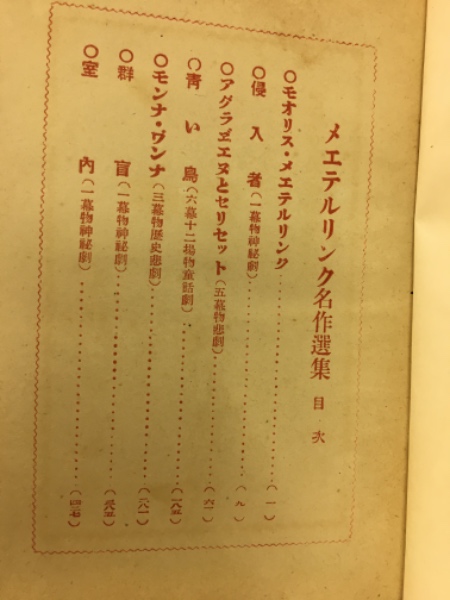 メエテルリンク名作選集 目次
○モオリス・メエテルリンク……(一)
○侵入者(一幕物神秘劇)……(九)
○アグラヹエヌとセリセット(五幕物悲劇)……(六一)
○青い鳥(六幕十二場物童話劇)……(一八五)
○モンナ・ヴンナ(三幕物歴史悲劇)……(二八一)
○群盲(一幕物神秘劇)……
○室内(一幕物神秘劇)……(四三七)